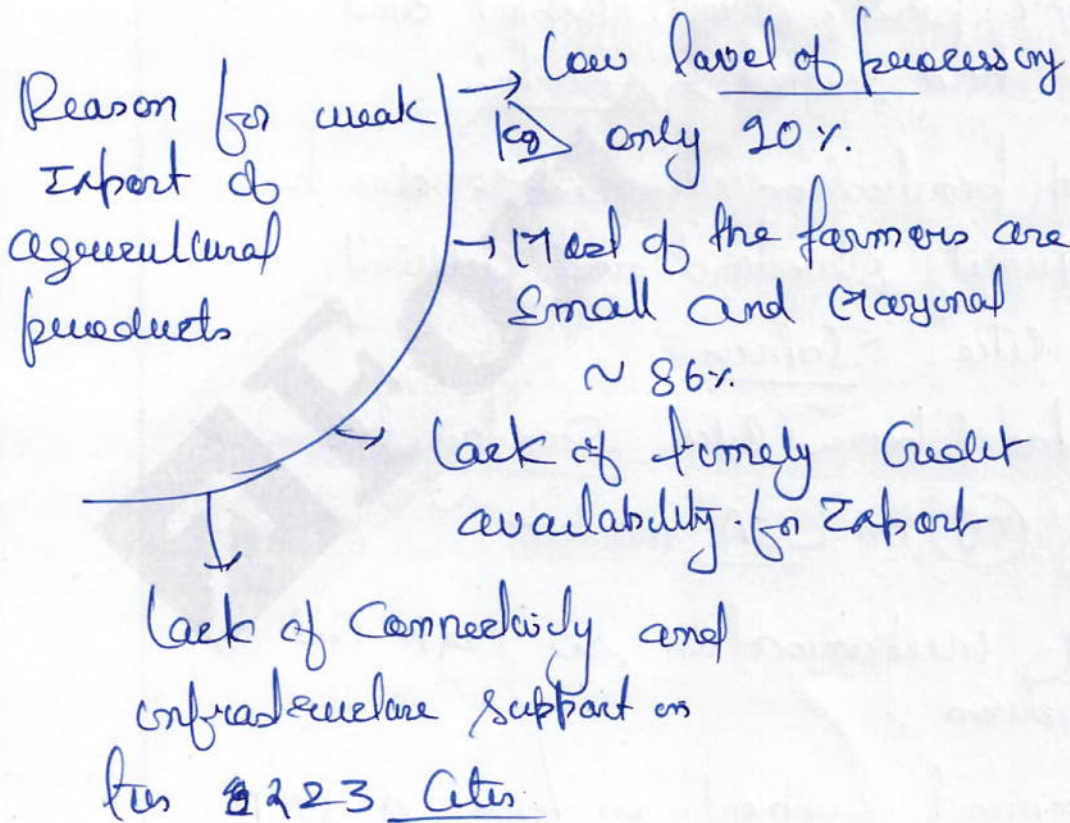 Reason for weak
Export of
agricultural
products
→ Low level of processing
Eg only 10%.
→ Most of the farmers are
Small and Marginal
~ 86%
→ Lack of timely Credit
availability for Export
Lack of Connectivity and
infrastructure support in
tier 2 2 3 Cities